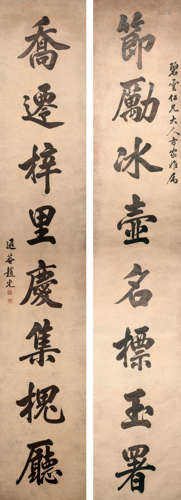 節勵冰壺名標玉署
碧雲仁兄大人方家雅屬
喬遷梓里慶集槐廳